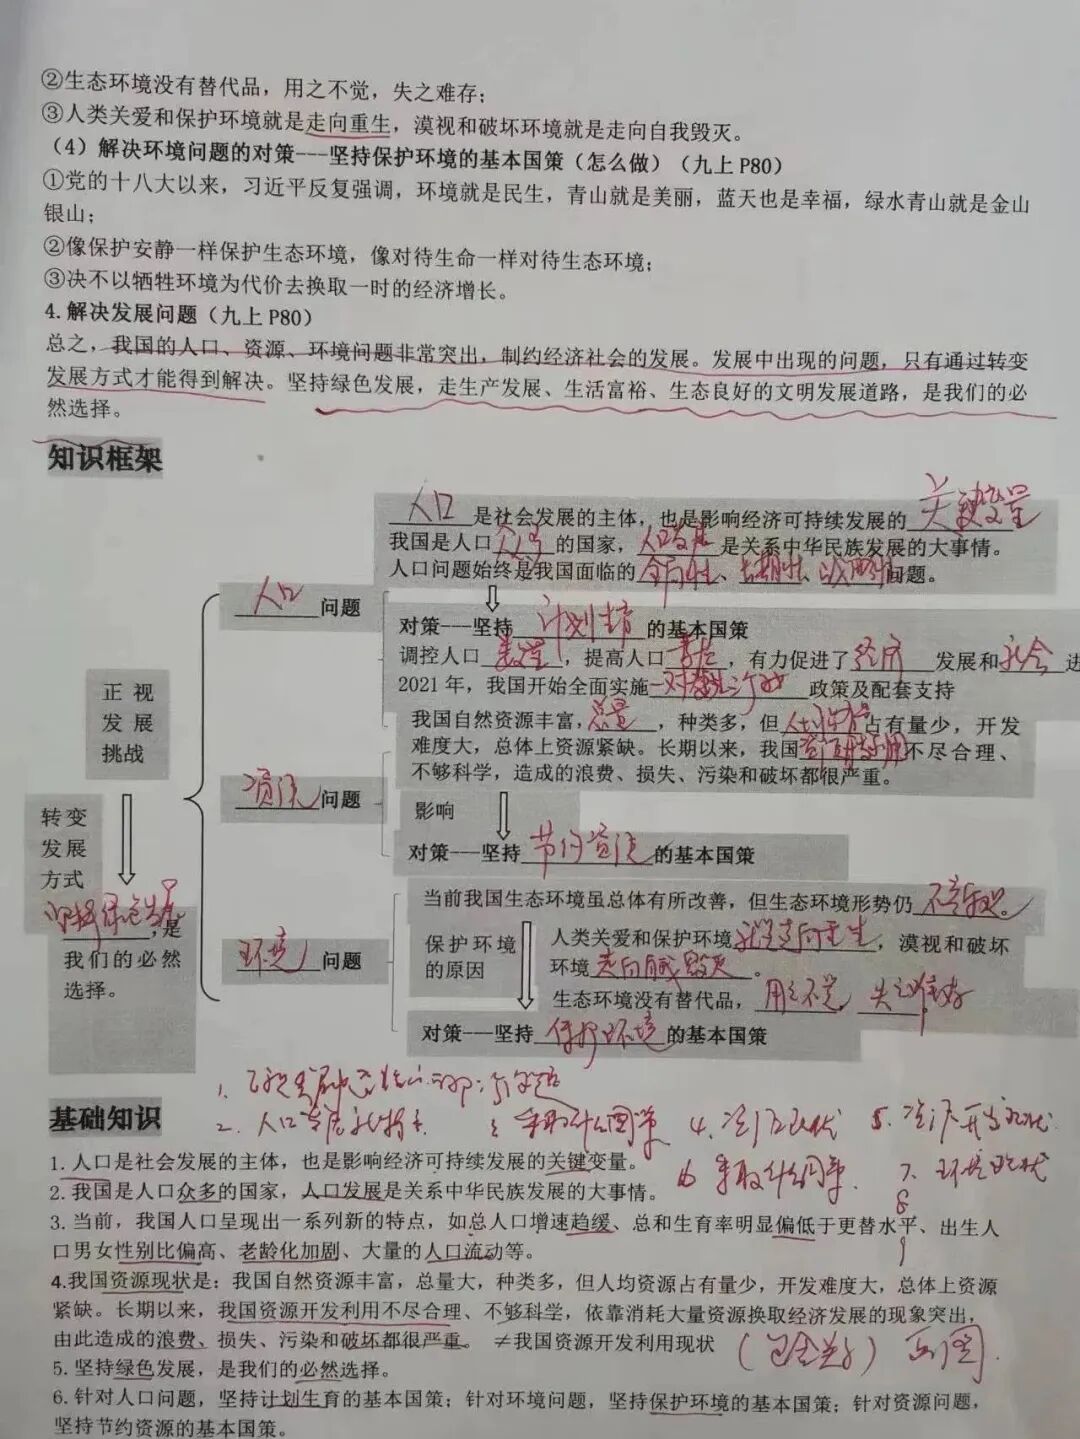 ②生态环境没有替代品，用之不觉，失之难存；
③人类关爱和保护环境就是走向重生，漠视和破坏环境就是走向自我毁灭。
（4）解决环境问题的对策---坚持保护环境的基本国策（怎么做）（九上 P80）
①党的十八大以来，习近平反复强调，环境就是民生，青山就是美丽，蓝天也是幸福，绿水青山就是金山
银山；
②像保护安静一样保护生态环境，像对待生命一样对待生态环境；
③决不以牺牲环境为代价去换取一时的经济增长。
4. 解决发展问题（九上 P80）
总之，我国的人口、资源、环境问题非常突出，制约经济社会的发展。发展中出现的问题，只有通过转变
发展方式才能得到解决。坚持绿色发展，走生产发展、生活富裕、生态良好的文明发展道路，是我们的必
然选择。
知识框架
人口是社会发展的主体，也是影响经济可持续发展的关键变量
我国是人口众多的国家，人口发展是关系中华民族发展的大事情。
人口问题始终是我国面临的全局性、长期性、战略性问题。
人口问题
对策---坚持计划生育的基本国策
调控人口数量，提高人口素质，有力促进了经济发展和社会进
2021 年，我国开始全面实施一对夫妻生三个政策及配套支持
正视
发展
挑战
我国自然资源丰富，总量，种类多，但人均资源占有量少，开发
难度大，总体上资源紧缺。长期以来，我国资源开发利用不尽合理、
不够科学，造成的浪费、损失、污染和破坏都很严重。
资源问题
影响
对策---坚持节约资源的基本国策
转变
发展
方式
坚持绿色发展，是
我们的必然
选择。
当前我国生态环境虽总体有所改善，但生态环境形势仍不容乐观。
环境问题
保护环境
的原因
人类关爱和保护环境就是走向重生，漠视和破坏
环境走向自我毁灭。
生态环境没有替代品，用之不觉 失之难存
对策---坚持保护环境的基本国策
1.
2. 人口发展新特点 3. 采取什么国策 4. 资源现状 5. 资源开发现状
基础知识
1. 人口是社会发展的主体，也是影响经济可持续发展的关键变量。
6 采取什么国策. 7. 环境现状
2. 我国是人口众多的国家，人口发展是关系中华民族发展的大事情。
8
3. 当前，我国人口呈现出一系列新的特点，如总人口增速趋缓、总和生育率明显偏低于更替水平、出生人
口男女性别比偏高、老龄化加剧、大量的人口流动等。
9
4.我国资源现状是：我国自然资源丰富，总量大，种类多，但人均资源占有量少，开发难度大，总体上资源
紧缺。长期以来，我国资源开发利用不尽合理、不够科学，依靠消耗大量资源换取经济发展的现象突出，
由此造成的浪费、损失、污染和破坏都很严重。 ≠我国资源开发利用现状
5. 坚持绿色发展，是我们的必然选择。
6. 针对人口问题，坚持计划生育的基本国策；针对环境问题，坚持保护环境的基本国策；针对资源问题，
坚持节约资源的基本国策。